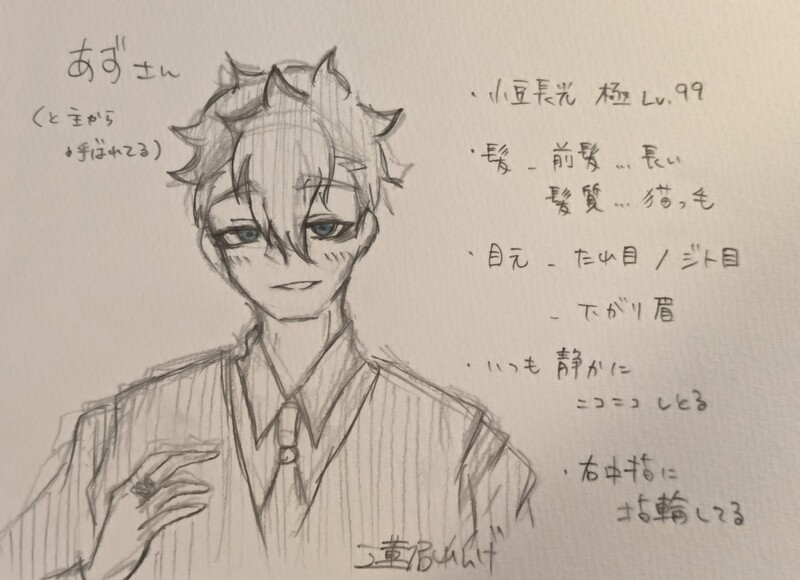 あずさん
(と主から
呼ばれてる)
・小豆長光 極 Lv.99
・髪 - 前髪…長い
髪質…猫っ毛
・目元 - たれ目/ジト目
- 下がり眉
・いつも静かに
ニコニコしとる
・右中指に
指輪してる